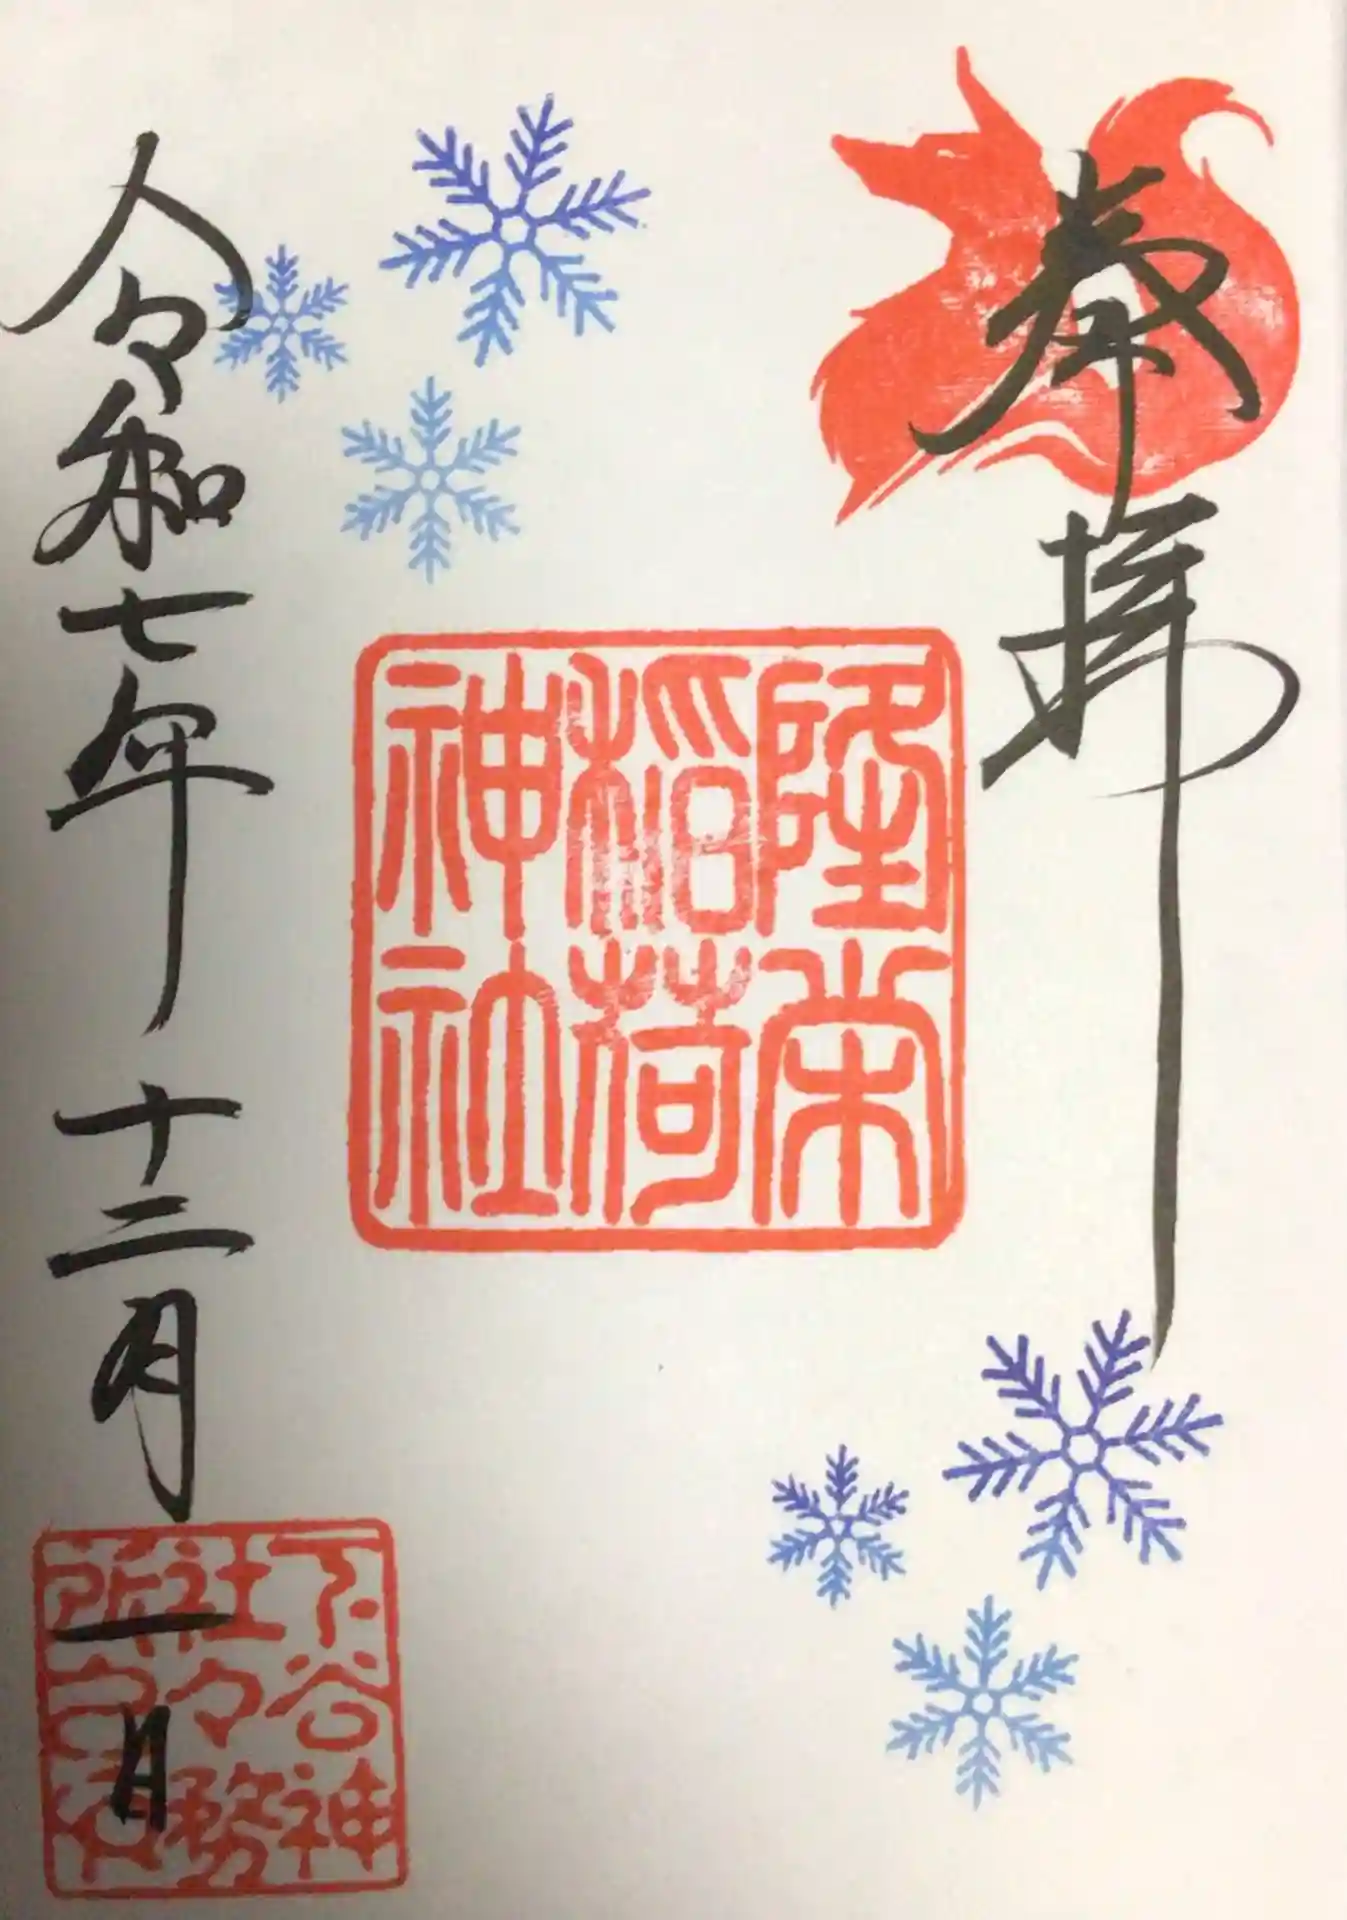 奉拝
隆栄
稲荷
神社
令和七年 十二月一日
下谷神
社々務
所之印